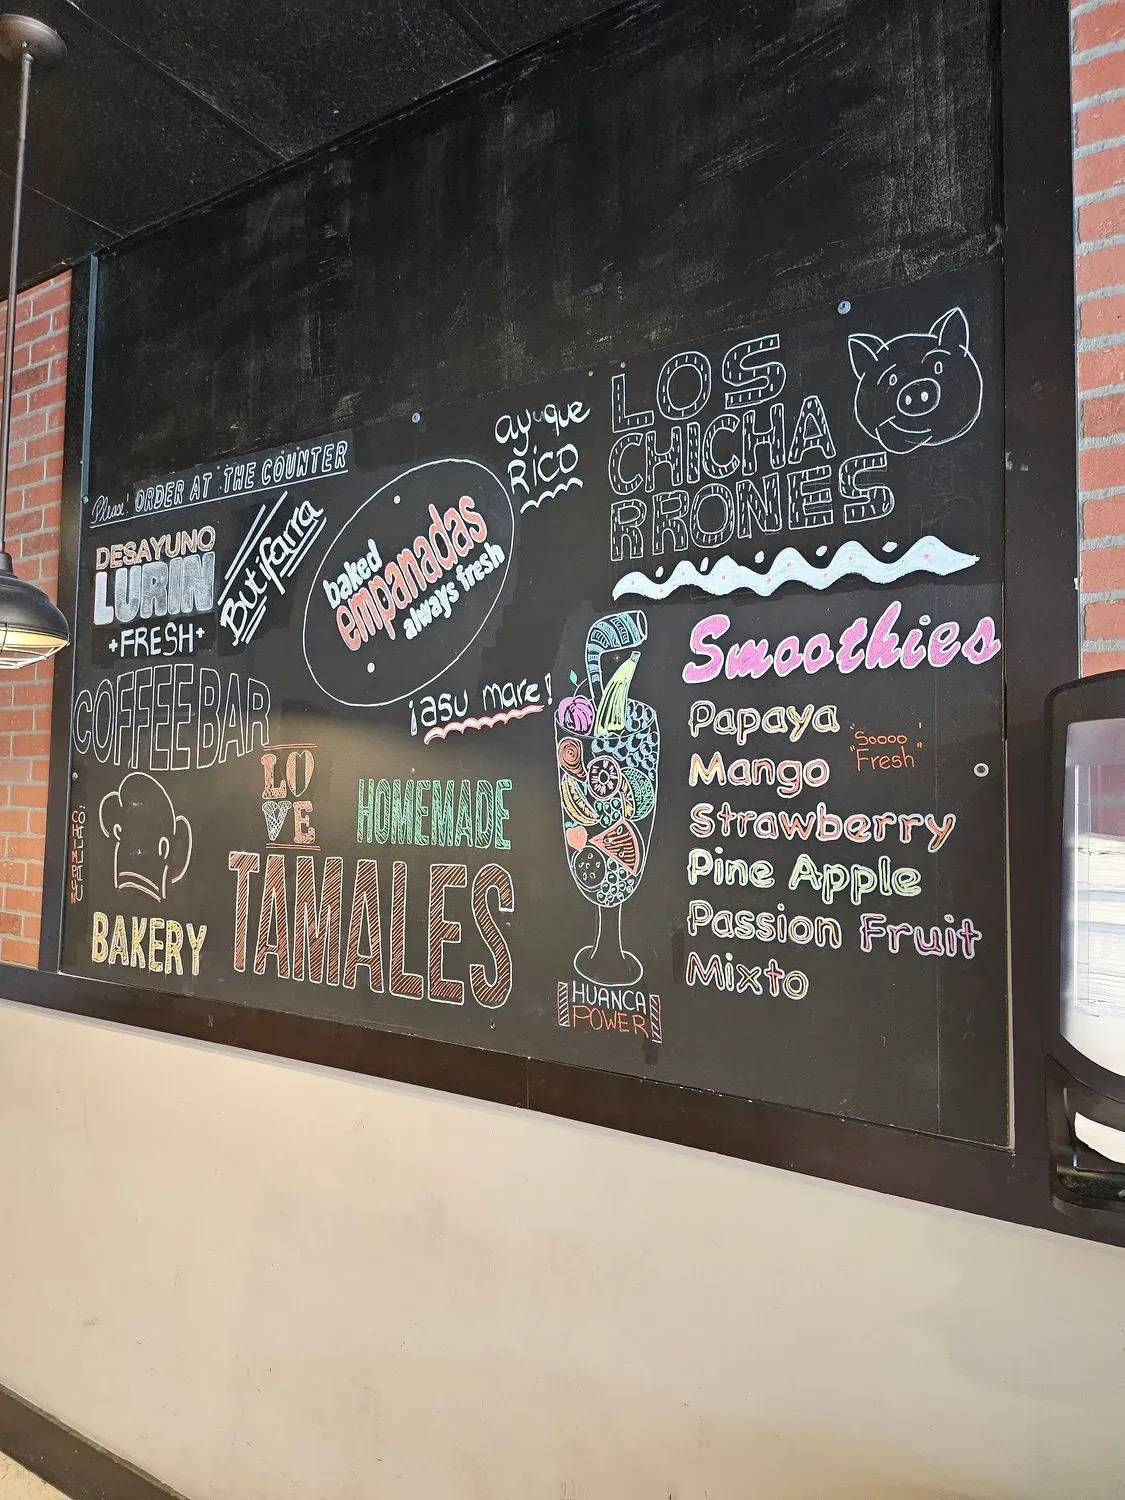 Please! ORDER AT THE COUNTER
DESAYUNO
LURIN
FRESH
Butifarra
baked
empanadas
always fresh
ayuque
RICO
LOS
CHICHA
RRONES
COFFEE BAR
¡asu mare!
LO
VE
HOMEMADE
TAMALES
CHIMPUN
CALLAO
BAKERY
HUANCA
POWER
Smoothies
Papaya
Mango
"Soooo
Fresh"
Strawberry
Pine Apple
Passion Fruit
Mixto